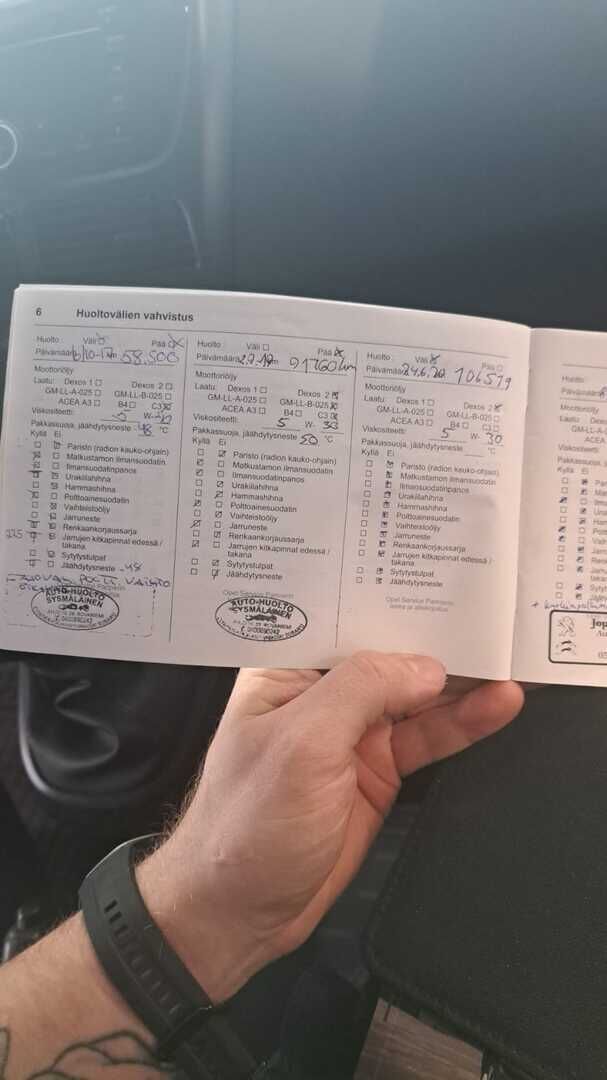 6 Huoltovälien vahvistus
Huolto Väli Pää
Päivämäärä 58.500
Moottoriöljy
Laatu: Dexos 1 Dexos 2
GM-LL-A-025 GM-LL-B-025
ACEA A3 B4 C3
Viskositeetti: 5 W-
Pakkassuoja, jäähdytysneste -48 °C
Kyllä Ei
Paristo (radion kauko-ohjain)
Matkustamon ilmansuodatin
Ilmansuodatinpanos
Urakiilahihna
Hammashihna
Polttoainesuodatin
Vaihteistoöljy
Jarruneste
Renkaankorjaussarja
Jarrujen kitkapinnat edessä /
takana
Sytytystulpat
Jäähdytysneste -48
AUTO-HUOLTO
SYSMÄLÄINEN
Huolto: Väli Pää
Päivämäärä 91760km
Moottoriöljy
Laatu: Dexos 1 Dexos 2
GM-LL-A-025 GM-LL-B-025
ACEA A3 B4 C3
Viskositeetti: 5 W- 30
Pakkassuoja, jäähdytysneste 50 °C
Kyllä Ei
Paristo (radion kauko-ohjain)
Matkustamon ilmansuodatin
Ilmansuodatinpanos
Urakiilahihna
Hammashihna
Polttoainesuodatin
Vaihteistoöljy
Jarruneste
Renkaankorjaussarja
Jarrujen kitkapinnat edessä /
takana
Sytytystulpat
Jäähdytysneste
Opel Service Partnerin
AUTO-HUOLTO
SYSMÄLÄINEN
Huolto: Väli Pää
Päivämäärä 24.6.20 106579
Moottoriöljy
Laatu: Dexos 1 Dexos 2
GM-LL-A-025 GM-LL-B-025
ACEA A3 B4 C3
Viskositeetti: 5 W- 30
Pakkassuoja, jäähdytysneste °C
Kyllä Ei
Paristo (radion kauko-ohjain)
Matkustamon ilmansuodatin
Ilmansuodatinpanos
Urakiilahihna
Hammashihna
Polttoainesuodatin
Vaihteistoöljy
Jarruneste
Renkaankorjaussarja
Jarrujen kitkapinnat edessä /
takana
Sytytystulpat
Jäähdytysneste
Opel Service Partnerin
leima ja allekirjoitus
Huolto:
Päivämäärä
Moottoriöljy
Laatu:
GM-LL-A
ACE
Viskositeetti:
Pakkassuoja,
Kyllä Ei